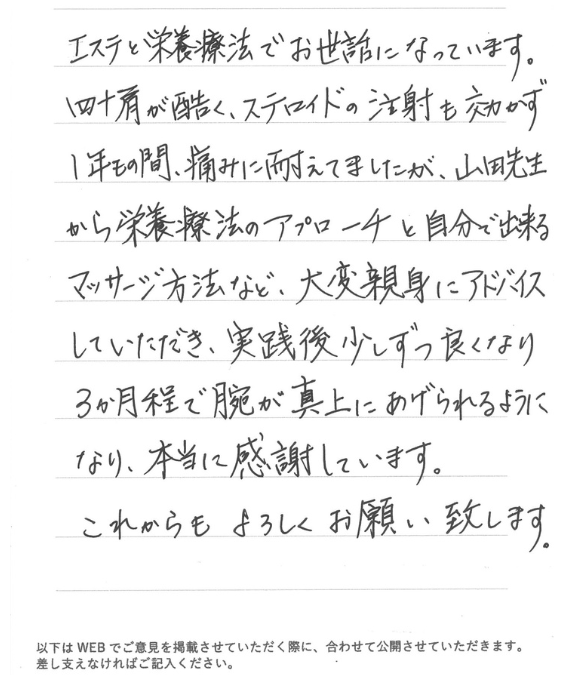 エステと栄養療法でお世話になっています。
四十肩が酷く、ステロイドの注射も効かず
1年もの間、痛みに耐えてましたが、山田先生
から栄養療法のアプローチと自分で出来る
マッサージ方法など、大変親身にアドバイス
していただき、実践後少しずつ良くなり
3か月程で腕が真上にあげられるように
なり、本当に感謝しています。
これからもよろしくお願い致します。
以下はWEBでご意見を掲載させていただく際に、合わせて公開させていただきます。
差し支えなければご記入ください。